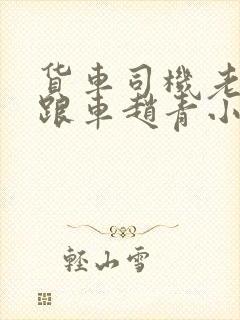 货车司機老
跟車趙青小
輕山雪